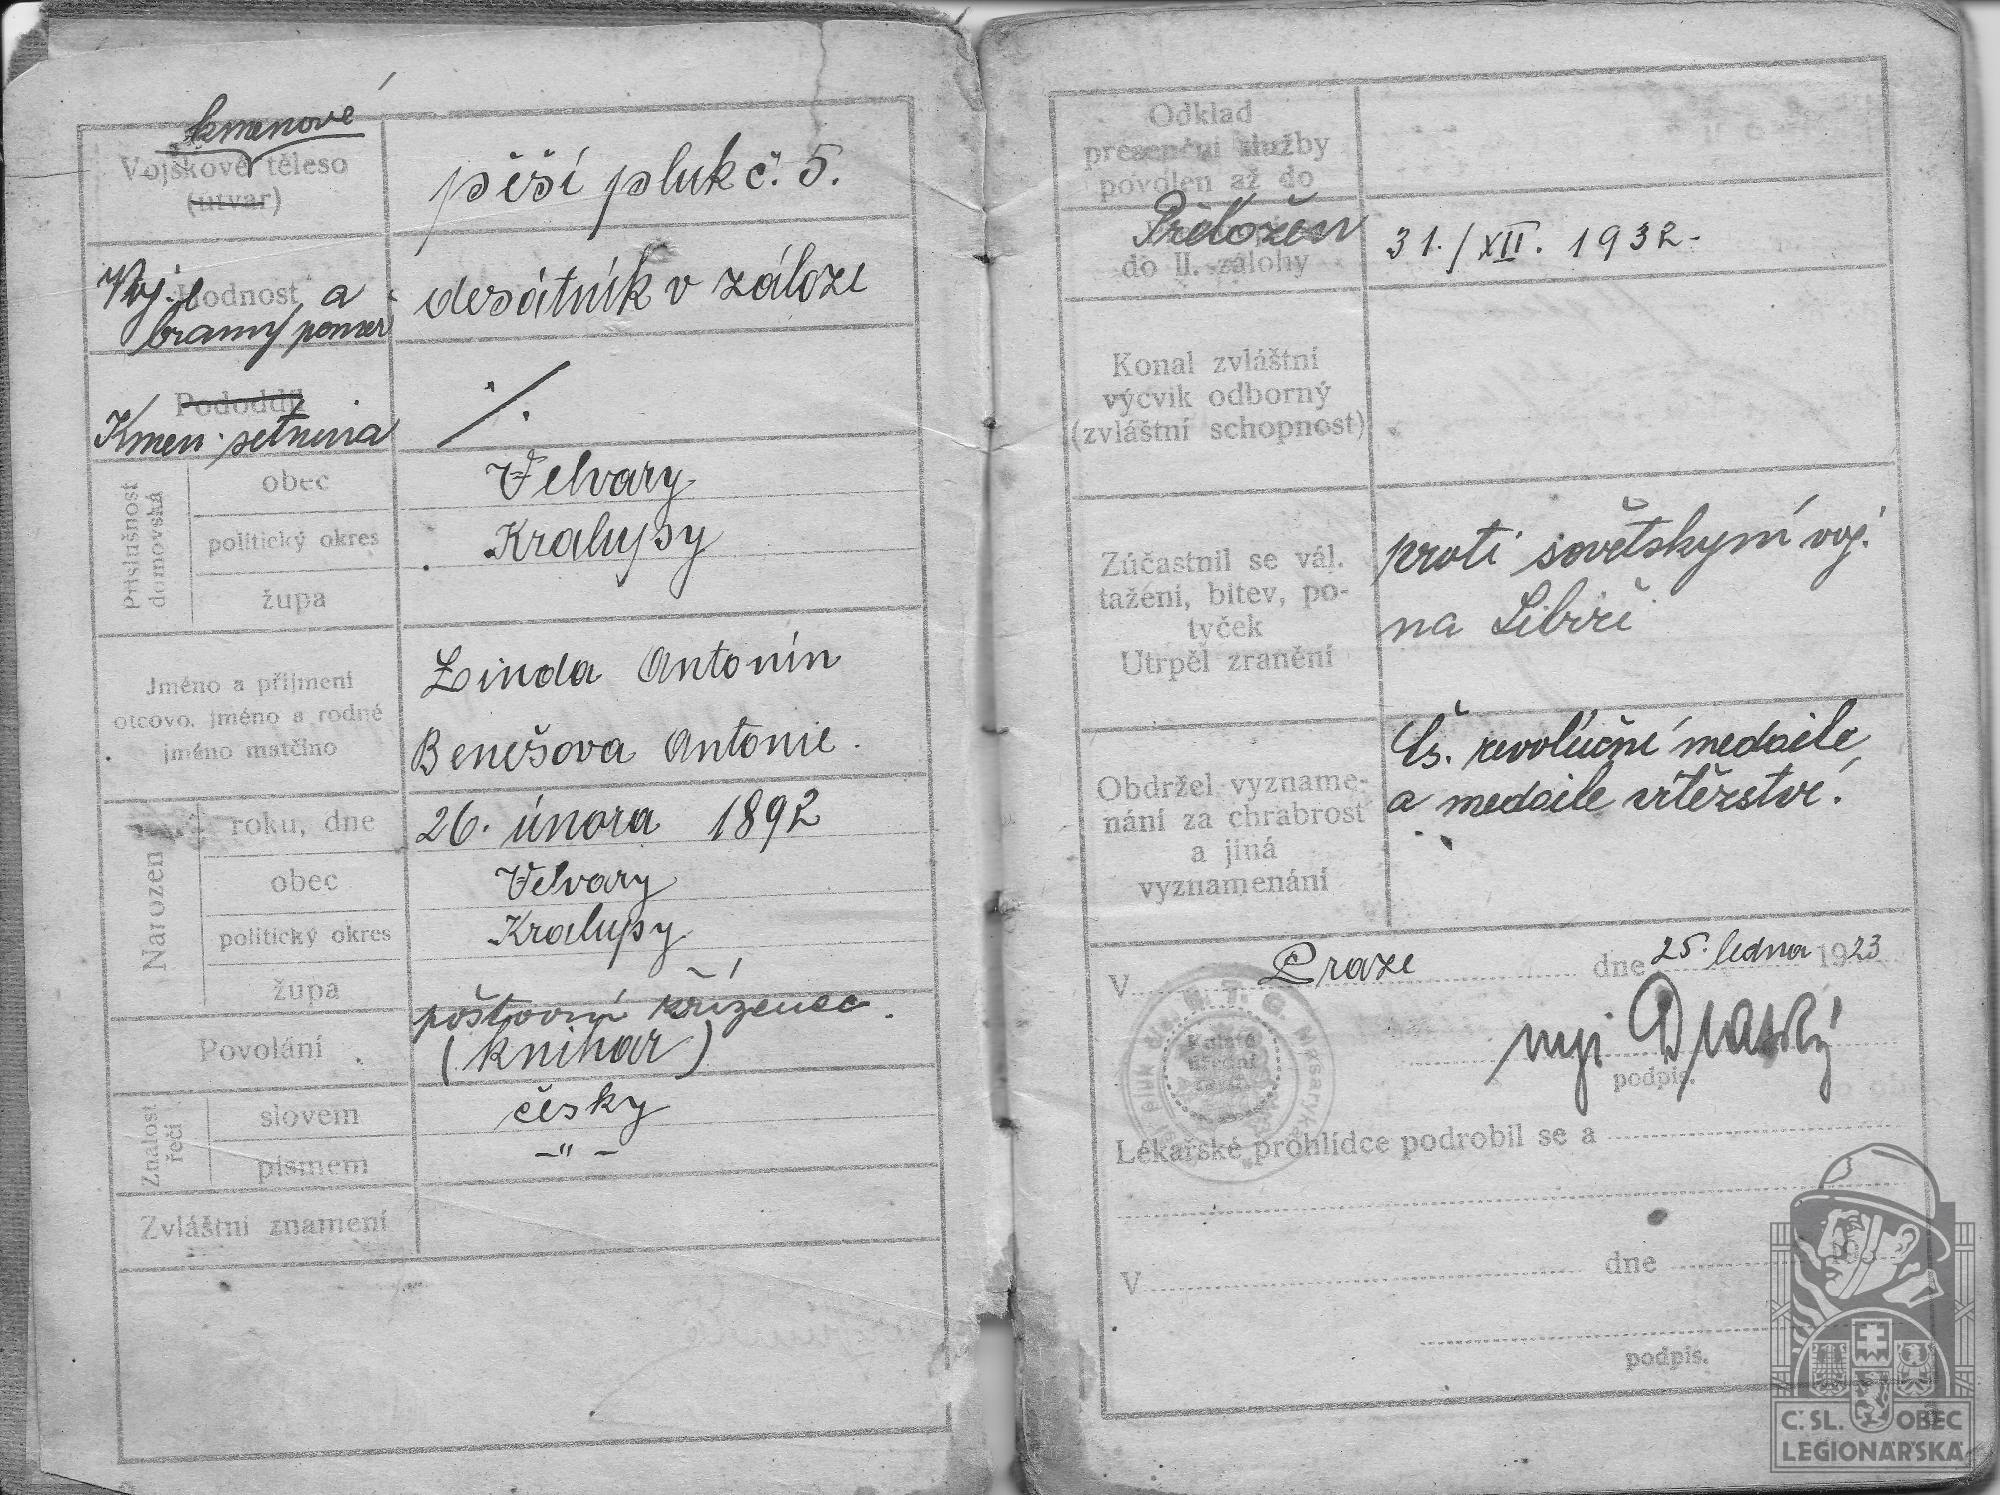 kmenové
Vojskové těleso
(útvar)
pěší pluk č. 5.
Voj. hodnost a
branný poměr
desátník v záloze
Pododdíl
Kmen. setnina
·/.
Příslušnost domovská
obec
Velvary
politický okres
Kralupy
župa
Jméno a příjmení
otcovo, jméno a rodné
jméno matčino
Linda Antonín
Benešova Antonie.
Narozen
roku, dne
26. února 1892
obec
Velvary
politický okres
Kralupy
župa
Povolání
poštovní zřízenec.
(knihař)
Znalost řečí
slovem
česky
písmem
-"-
Zvláštní znamení
Odklad
presenční služby
povolen až do
Přeložen
do II. zálohy
31./XII. 1932-
Konal zvláštní
výcvik odborný
(zvláštní schopnost)
Zúčastnil se vál.
tažení, bitev, po-
tyček
Utrpěl zranění
proti sovětským voj.
na Sibiři
Obdržel vyzname-
nání za chrabrost
a jiná
vyznamenání
Čs. revoluční medaile
a medaile vítězství.
V Praze dne 25. ledna 1923
podpis.
Lékařské prohlídce podrobil se a
V dne
podpis.
Č. SL. OBEC
LEGIONÁŘSKÁ